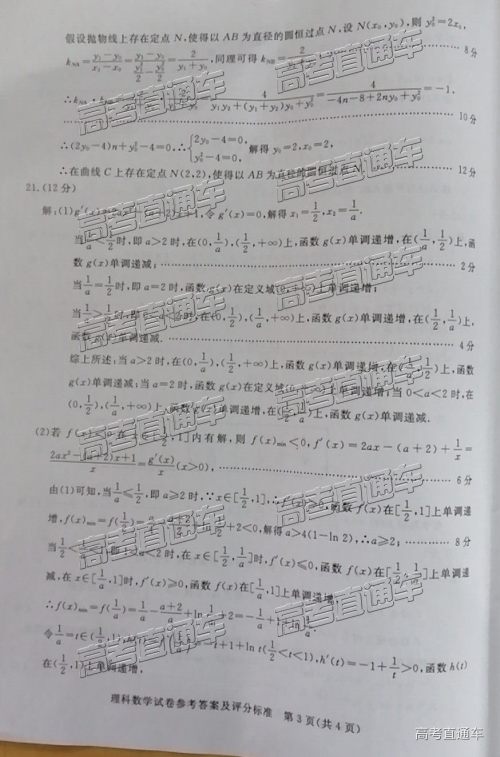 假设抛物线上存在定点 N,使得以 AB 为直径的圆恒过点 N,设 N(x₀,y₀),则 y₀²=2x₀,
k_NA=(y₁-y₀)/(x₁-x₀)=(y₁-y₀)/(y₁²/2-y₀²/2)=2/(y₁+y₀),同理可得 k_NB=2/(y₂+y₀) 8分
4/(y₁y₂+(y₁+y₂)y₀+y₀²)=4/(-4n-8+2ny₀+y₀²)=-1.
10分
∴(2y₀-4)n+y₀²-4=0.∴{2y₀-4=0, y₀²-4=0, 解得 y₀=2,x₀=2,
∴在曲线 C 上存在定点 N(2,2),使得以 AB 为直径的圆恒过点 N. 12分
21.(12分)
解:(1)g′(x) 令 g′(x)=0,解得 x₁=1/2,x₂=1/a.
当 1/a<1/2 时,即 a>2 时,在(0,1/a),(1/2,+∞)上,函数 g(x)单调递增,在(1/a,1/2)上,函
数 g(x)单调递减; 2分
当 1/a=1/2 时,即 a=2 时,函数 g(x)在定义域(0,+∞)上单调递增;
当 1/a>1/2 时,即 0<a<2 时,在(0,1/2),(1/a,+∞)上,函数 g(x)单调递增,在(1/2,1/a)上,
函数 g(x)单调递减. 4分
综上所述:当 a>2 时,在(0,1/a),(1/2,+∞)上,函数 g(x)单调递增,在(1/a,1/2)上,函
数 g(x)单调递减;当 a=2 时,函数 g(x)在定义域(0,+∞)上单调递增;当 0<a<2 时,在
(0,1/2),(1/a,+∞)上,函数 g(x)单调递增,在(1/2,1/a)上,函数 g(x)单调递减.
(2)若 f(x) 在[1/2,1]内有解,则 f(x)min≤0,f′(x)=2ax-(a+2)+1/x=
(2ax²-(a+2)x+1)/x=g′(x)/x(x>0), 6分
由(1)可知,当 1/a≤1/2,即 a≥2 时,∵x∈[1/2,1],∴f′(x)≥0,函数 f(x)在[1/2,1]上单调递
增,f(x)min=f(1/2) +2<0,解得 a>4(1-ln2),∴a≥2; 8分
当 1/2<1/a 即 1<a<2 时,在 x∈[1/2,1/a]时,f′(x)≤0,函数 f(x)在[1/2,1/a]上单调递
减,在 x∈[1/a,1]时,f′(x)≥0,函数 f(x)在[1/a,1]上单调递增,
∴f(x)min=f(1/a)=1/a-(a+2)/a+ln 1/a+2=-1/a+1+ln 1/a.
令 1/a=t∈(1/2,1), -t+1+ln t(1/2<t<1),h′(t)=-1+1/t>0,函数 h(t)
在(1/2,1)上单调递增,
理科数学试卷参考答案及评分标准 第 3 页(共 4 页)
高考直通车
高考直通车
高考直通车
高考直通车
高考直通车
高考直通车
高考直通车